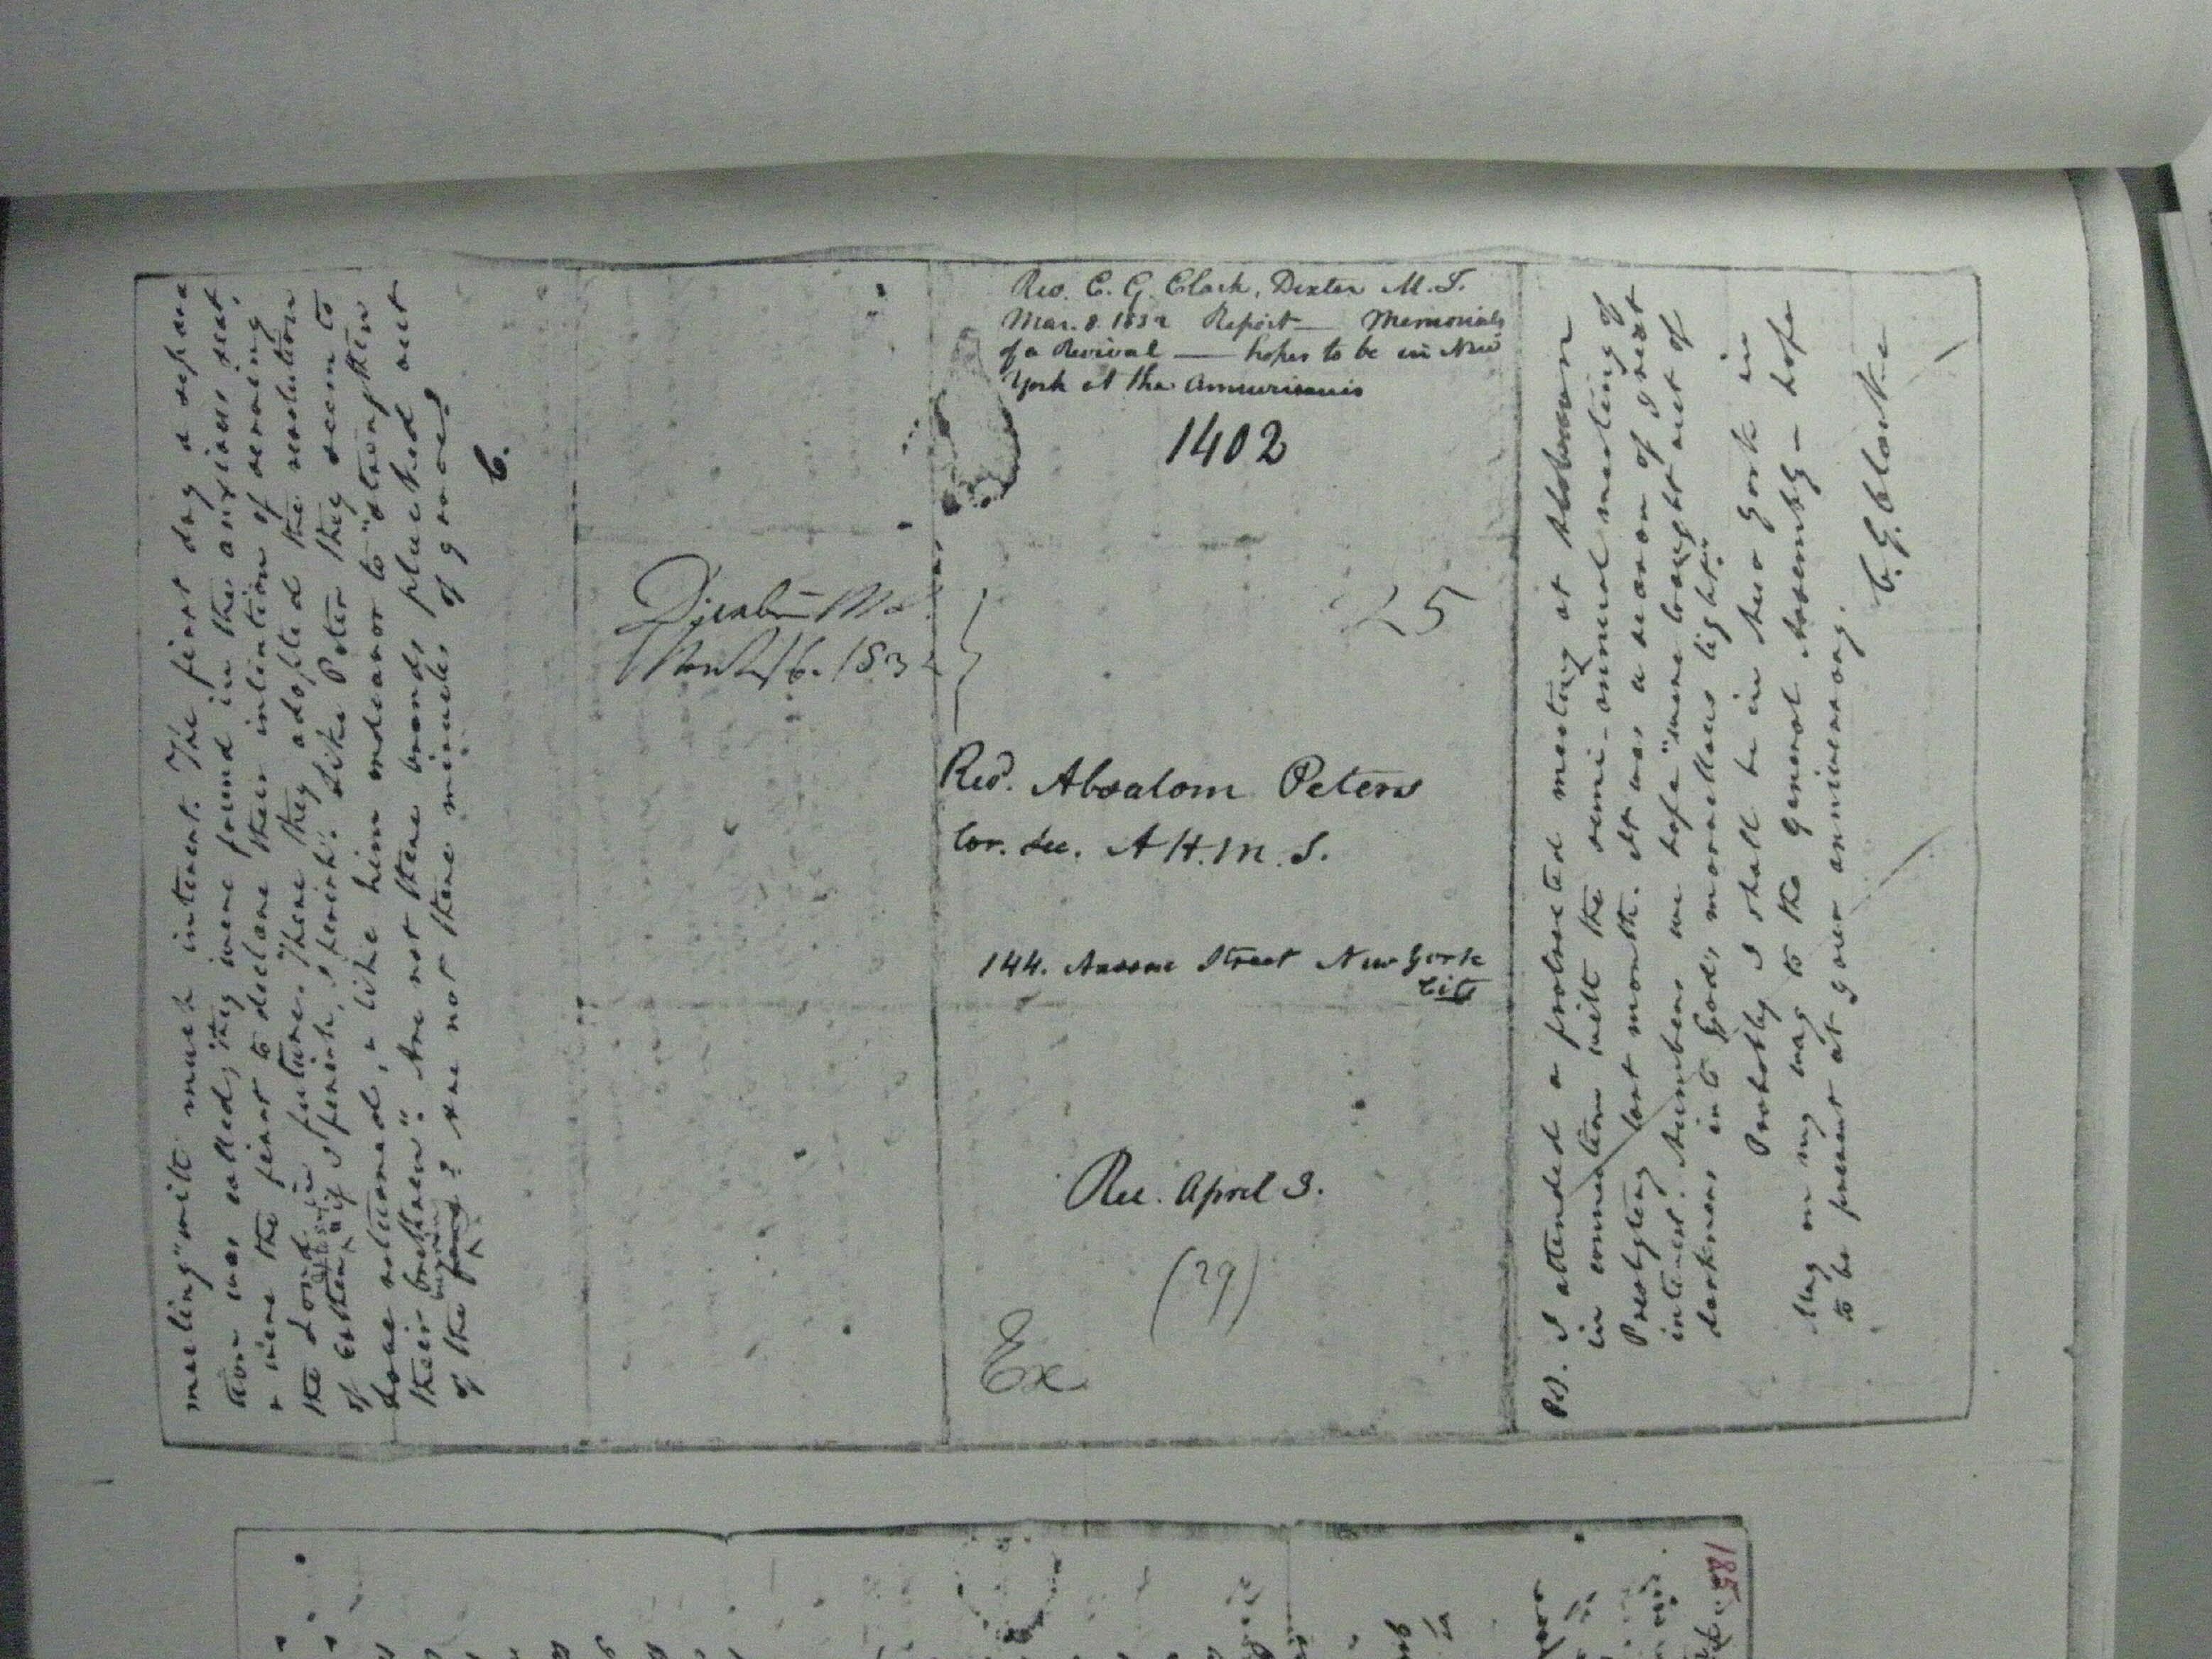 meeting" with much interest. The first day a separa
tion was called, they were found in the anxious seat,
& were the first to declare their intention of serving
the Lord in future. There they adopted the resolution
of Esther, "if I perish, I perish". Like Peter they seem to
have returned, & like him endeavor to "strengthen
their brethren". Are not these brands plucked out
of the burning? Are not these miracles of grace?
C.
Mar. 16. 1832
Rev. C. G. Clark, Dexter M.T.
Mar. 8. 1832 Report — Memorials
of a Revival — hopes to be in New
York at the Anniversaries
1402
25
Revd. Absalom Peters
Cor. Sec. A.H.M.S.
144. Nassau Street New York
City
Rec. April 3.
(29)
Ex
PS. I attended a protracted meeting at
in connection with the semi-annual meeting of
Presbytery last month. It was a season of great
interest. Numbers we hope "were brought out of
darkness into God's marvellous light".
Probably I shall be in New York in
May on my way to the General Assembly — hope
to be present at your anniversary.
C. G. Clarke
185